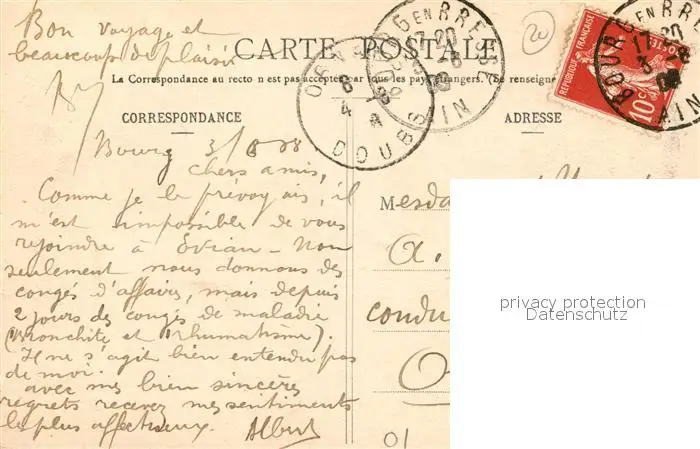 Bon voyage et
beaucoup de plaisir
CARTE POSTALE
La Correspondance au recto n est pas acceptée par tous les pays étrangers. (Se renseigne
CORRESPONDANCE
ADRESSE
BOURG EN BRESSE
17 20
AIN
ORNANS
DOUBS
BOURG EN BRESSE
17 20
AIN
RÉPUBLIQUE FRANÇAISE
POSTES
10c
20
Bourg 3/8 08
chers amis,
Comme je le prévoyais, il
m'est impossible de vous
rejoindre à Evian - Non
seulement nous donnons des
congés d'affaires, mais depuis
2 jours des congés de maladie
(Bronchite et Rhumatisme).
Il ne s'agit bien entendu pas
de moi.
avec mes bien sincères
regrets recevez mes sentiments
les plus affectueux.
Albert
Mesda
a.
condu
O
01
privacy protection
Datenschutz